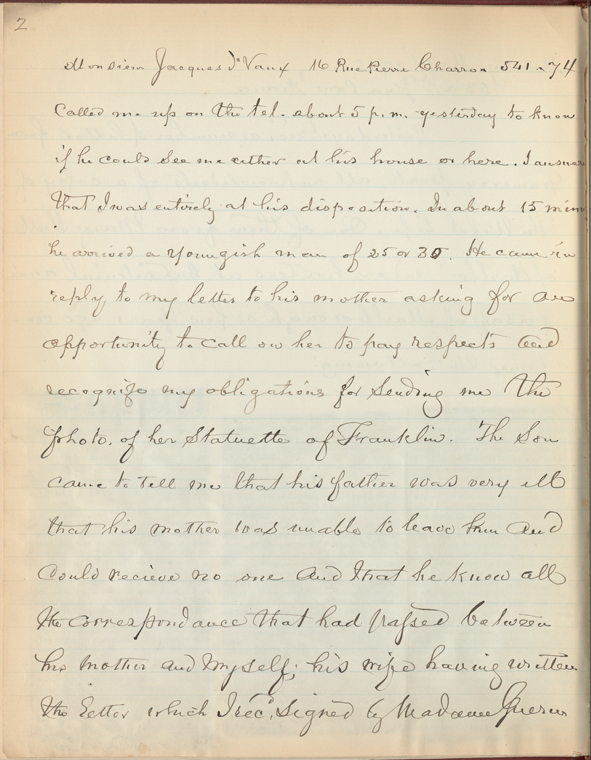 2
Monsieur Jacques d'Vaux 16 Rue Pierre Charron 541-74
Called me up on the tel. about 5 p.m. yesterday to know
if he could see me either at his house or here. I answ
that I was entirely at his disposition. In about 15 min
he arrived a youngish man of 25 or 30. He came in
reply to my letter to his mother asking for an
opportunity to call on her to pay respects and
recognize my obligations for sending me the
photo. of her Statuette of Franklin. The Son
came to tell me that his father was very ill
that his mother was unable to leave him and
could recieve no one and that he knew all
the correspondance that had passed between
his mother and myself; his wife having written
the letter which I recd, signed by Madame